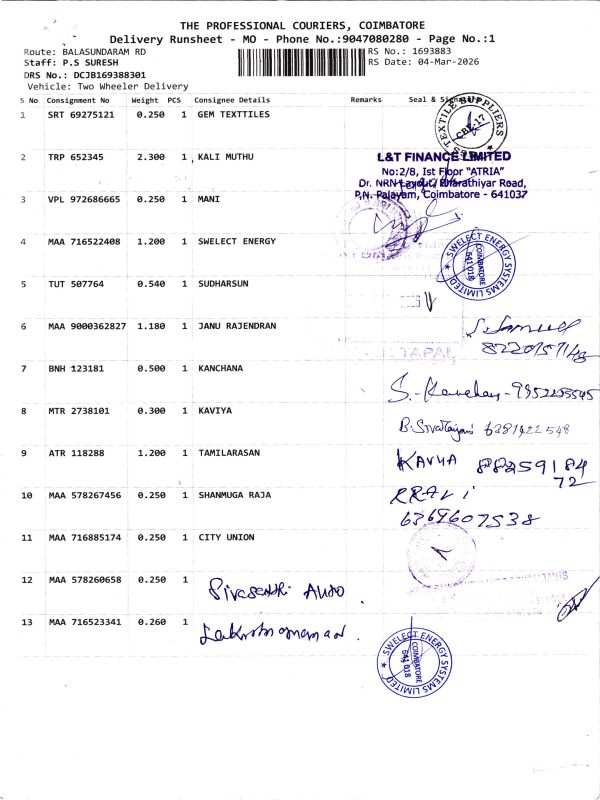 THE PROFESSIONAL COURIERS, COIMBATORE
Delivery Runsheet - MO - Phone No.:9047080280 - Page No.:1
Route: BALASUNDARAM RD
RS No.: 1693883
Staff: P.S SURESH
RS Date: 04-Mar-2026
DRS No.: DCJB169388301
Vehicle: Two Wheeler Delivery
S No Consignment No Weight PCS Consignee Details Remarks Seal & Signature
1 SRT 69275121 0.250 1 GEM TEXTTILES
TEXTILE SUPPLIERS
CBE-17
2 TRP 652345 2.300 1 KALI MUTHU
L&T FINANCE LIMITED
No:2/8, Ist Floor "ATRIA"
Dr. NRN Layout, Bharathiyar Road,
P.N. Palayam, Coimbatore - 641037
3 VPL 972686665 0.250 1 MANI
4 MAA 716522408 1.200 1 SWELECT ENERGY
SWELECT ENERGY SYSTEMS LIMITED
COIMBATORE
641 018
5 TUT 507764 0.540 1 SUDHARSUN
6 MAA 9000362827 1.180 1 JANU RAJENDRAN
S. Samuel
TAPAL
7 BNH 123181 0.500 1 KANCHANA
8 MTR 2738101 0.300 1 KAVIYA
9 ATR 118288 1.200 1 TAMILARASAN
KAVYA 88259184
72
10 MAA 578267456 0.250 1 SHANMUGA RAJA
6369607538
11 MAA 716885174 0.250 1 CITY UNION
12 MAA 578260658 0.250 1
13 MAA 716523341 0.260 1
SWELECT ENERGY SYSTEMS LIMITED
COIMBATORE
641 018